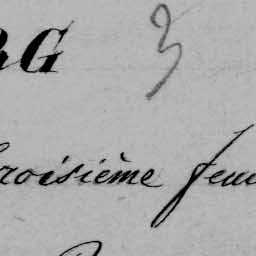 RG 3
troisième feui